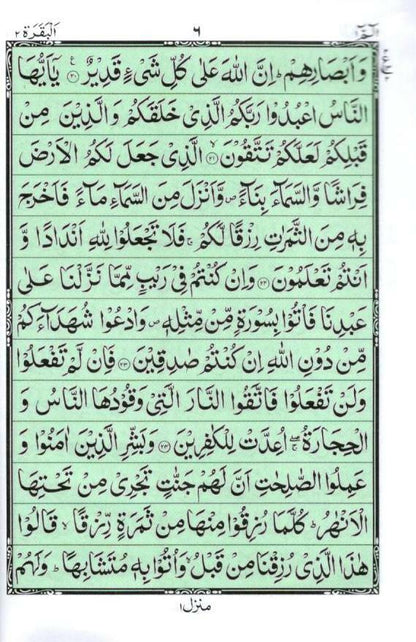 البقرة ٢
٦
الٓمّٓ ١
وَاَبْصَارِهِمْ ؕ اِنَّ اللّٰهَ عَلٰى كُلِّ شَیْءٍ قَدِیْرٌ ۠ ﴿۲۰﴾ یٰۤاَیُّهَا
النَّاسُ اعْبُدُوْا رَبَّكُمُ الَّذِیْ خَلَقَكُمْ وَالَّذِیْنَ مِنْ
قَبْلِكُمْ لَعَلَّكُمْ تَتَّقُوْنَ ۙ ﴿۲۱﴾ الَّذِیْ جَعَلَ لَكُمُ الْاَرْضَ
فِرَاشًا وَّالسَّمَآءَ بِنَآءً ۪ وَّاَنْزَلَ مِنَ السَّمَآءِ مَآءً فَاَخْرَجَ
بِهٖ مِنَ الثَّمَرٰتِ رِزْقًا لَّكُمْ ۚ فَلَا تَجْعَلُوْا لِلّٰهِ اَنْدَادًا وَّ
اَنْتُمْ تَعْلَمُوْنَ ﴿۲۲﴾ وَاِنْ كُنْتُمْ فِیْ رَیْبٍ مِّمَّا نَزَّلْنَا عَلٰى
عَبْدِنَا فَاْتُوْا بِسُوْرَةٍ مِّنْ مِّثْلِهٖ ۪ وَادْعُوْا شُهَدَآءَكُمْ
مِّنْ دُوْنِ اللّٰهِ اِنْ كُنْتُمْ صٰدِقِیْنَ ﴿۲۳﴾ فَاِنْ لَّمْ تَفْعَلُوْا
وَلَنْ تَفْعَلُوْا فَاتَّقُوا النَّارَ الَّتِیْ وَقُوْدُهَا النَّاسُ وَ
الْحِجَارَةُ ۖۚ اُعِدَّتْ لِلْكٰفِرِیْنَ ﴿۲۴﴾ وَبَشِّرِ الَّذِیْنَ اٰمَنُوْا وَ
عَمِلُوا الصّٰلِحٰتِ اَنَّ لَهُمْ جَنّٰتٍ تَجْرِیْ مِنْ تَحْتِهَا
الْاَنْهٰرُ ؕ كُلَّمَا رُزِقُوْا مِنْهَا مِنْ ثَمَرَةٍ رِّزْقًا ۙ قَالُوْا
هٰذَا الَّذِیْ رُزِقْنَا مِنْ قَبْلُ وَاُتُوْا بِهٖ مُتَشَابِهًا ؕ وَلَهُمْ
منزل ۱